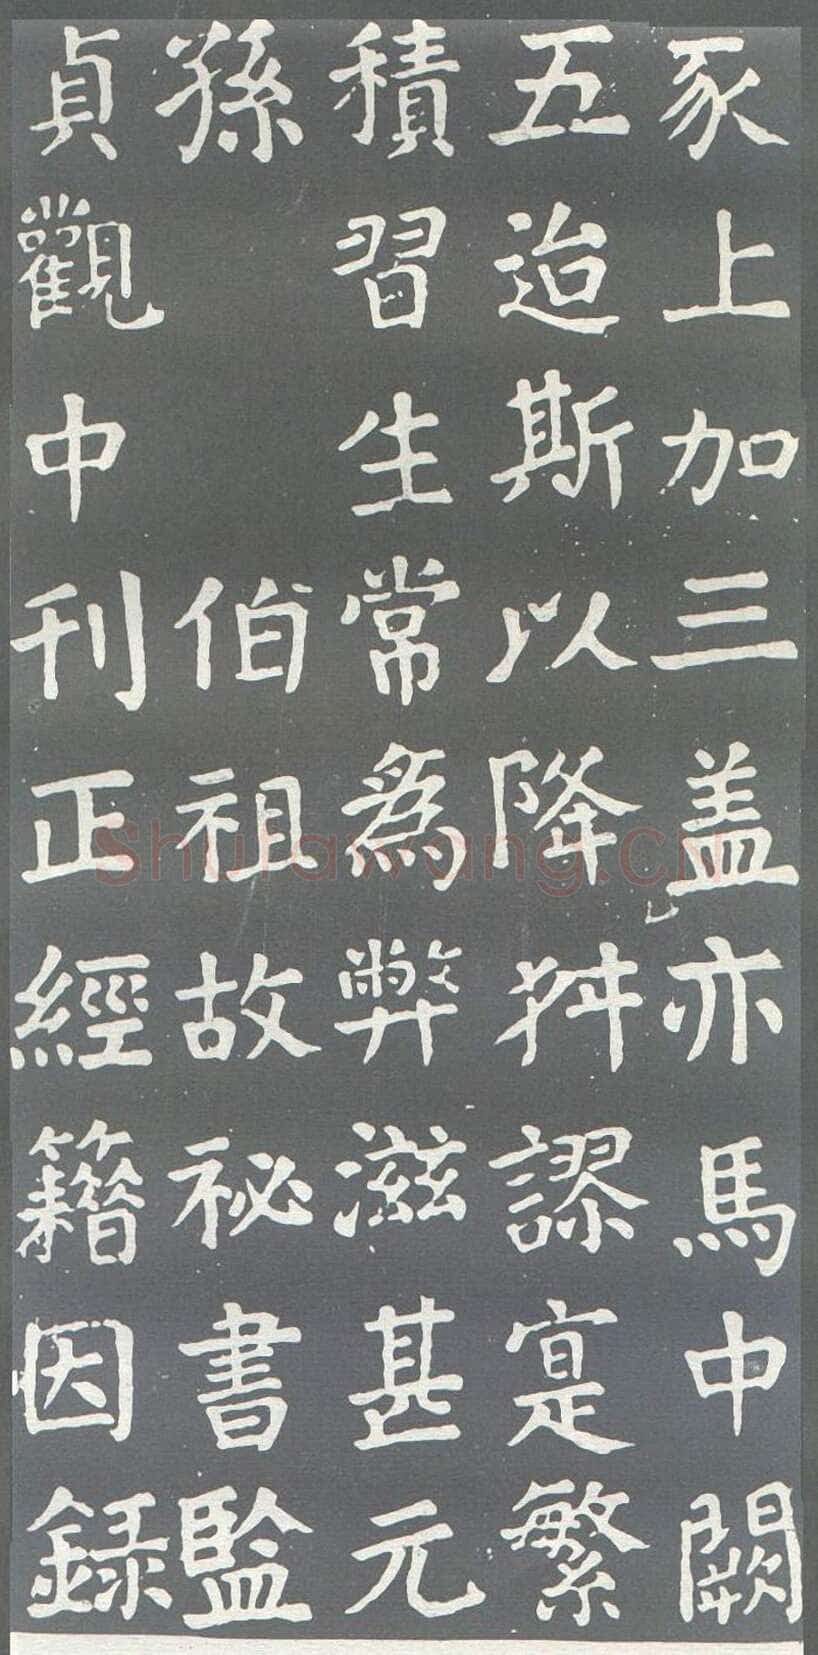 豕上加三盖亦馬中闕
五迨斯以降舛謬寔繁
積習生常爲弊滋甚元
孫 伯祖故祕書監
貞觀中刊正經籍因録
Shufawang.CN